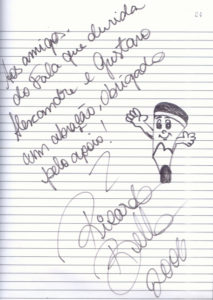 Aos amigos
do Fala que duvida
Alexandre e Gustavo
um abração, obrigado
pelo apoio!
Ricardo
2006